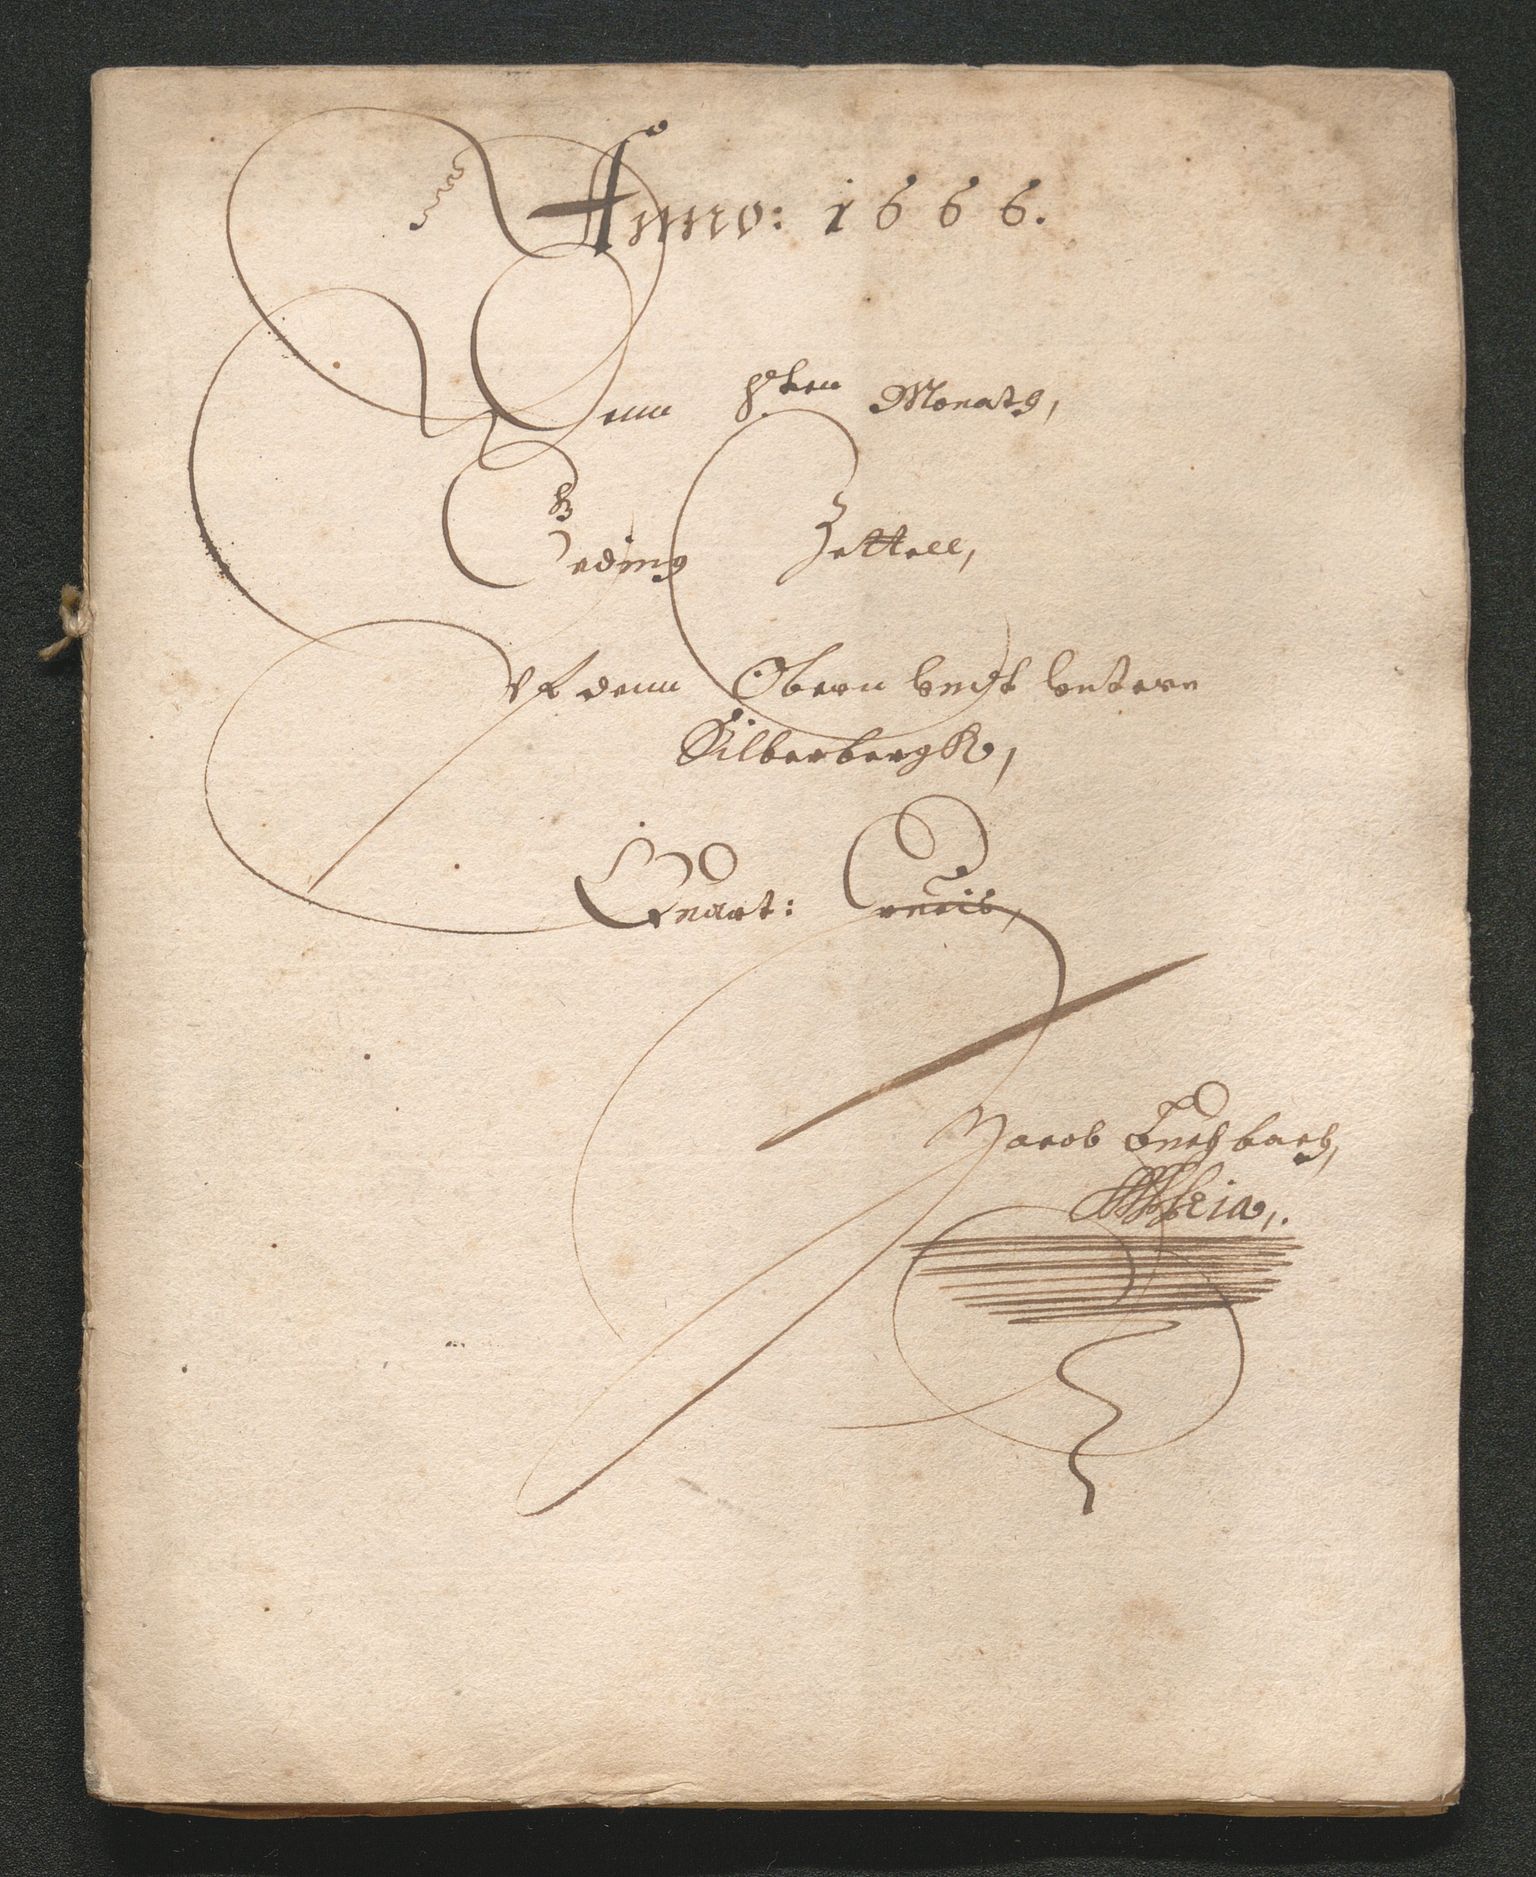 Anno: 1666.
Denn 8ten Monats,
Geding Zettell,
Vf denn Obern vndt vntern
Silberbergk,
Quart: Crucis,
Jacob Buchbach,
Mppria,.